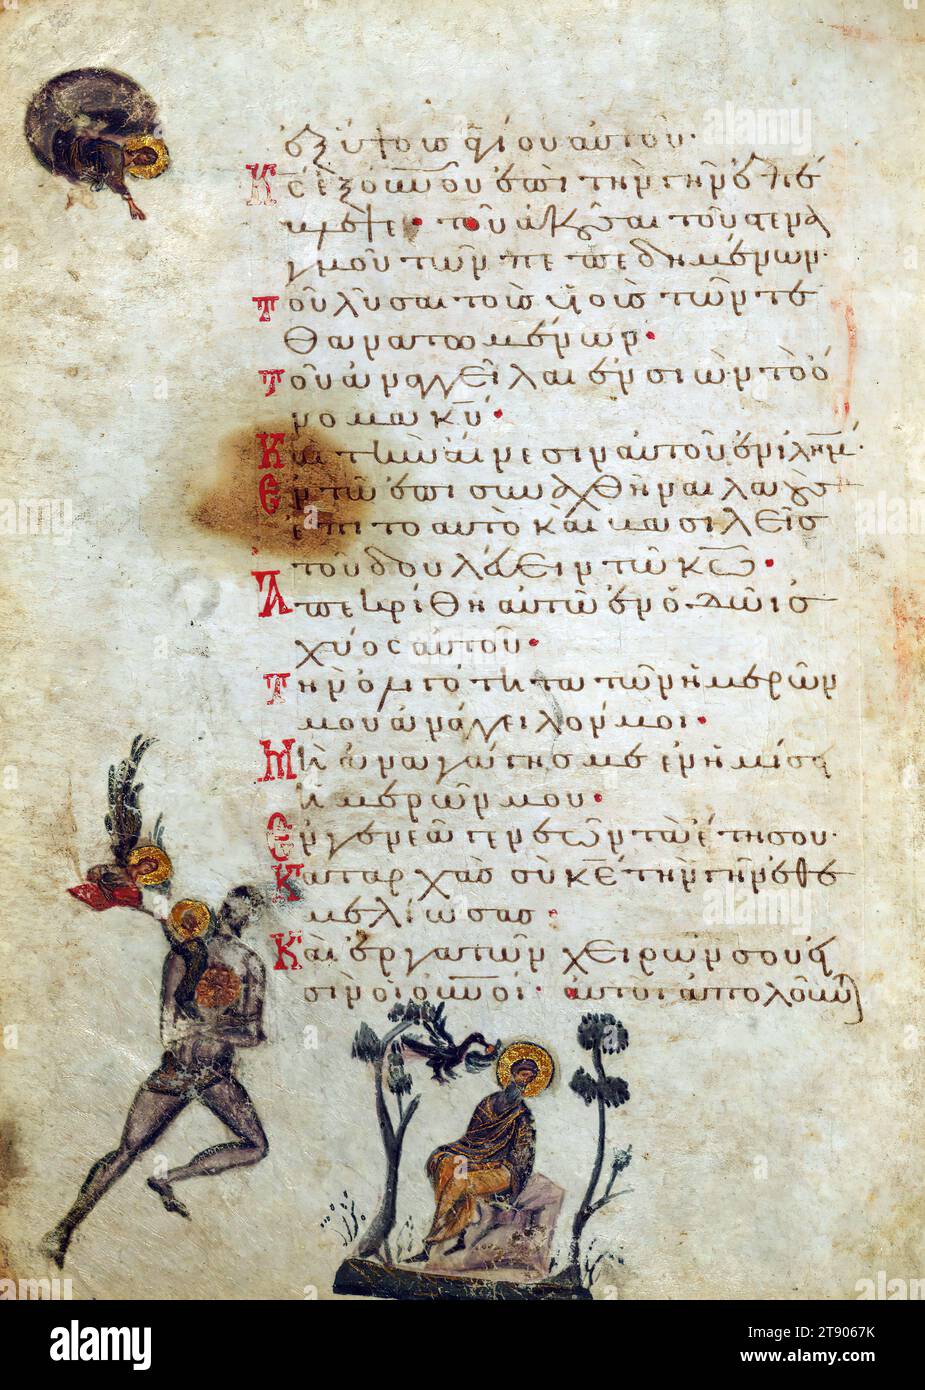 ἐξ ὕψους ἁγίου αὐτοῦ·
Κς ἐξ οὐνοῦ ἐπὶ τὴν γῆν ἐπέ
βλεψε· τοῦ ἀκοῦσαι τοῦ στενα
γμοῦ τῶν πεπεδημένων·
Τοῦ λῦσαι τοὺς υἱοὺς τῶν τε
θανατωμένων·
Τοῦ ἀναγγεῖλαι ἐν σιὼν τὸ ὄ
νομα κυ·
Καὶ τὴν αἴνεσιν αὐτοῦ ἐν ἱλημ·
Ἐν τῷ ἐπισυναχθῆναι λαοὺς
ἐπιτοαυτὸ καὶ βασιλεῖς
τοῦ δουλεύειν τῷ κω·
Ἀπεκρίθη αὐτῷ ἐν ὁδῷ ἰσ
χύος αὐτοῦ·
Τὴν ὀλιγότητα τῶν ἡμερῶν
μου ἀνάγγειλόν μοι·
Μὴ ἀναγάγης με ἐν ἡμίσει
ἡμερῶν μου·
Ἐν γενεᾷ γενεῶν τὰ ἔτη σου·
Καταρχὰς σὺ κε τὴν γῆν ἐθε
μελίωσας·
Καὶ ἔργα τῶν χειρῶν σου εἰ
σιν οἱ οὐνοι· αὐτοὶ ἀπολοῦν
alamy
Image ID: 2T9067K
www.alamy.com